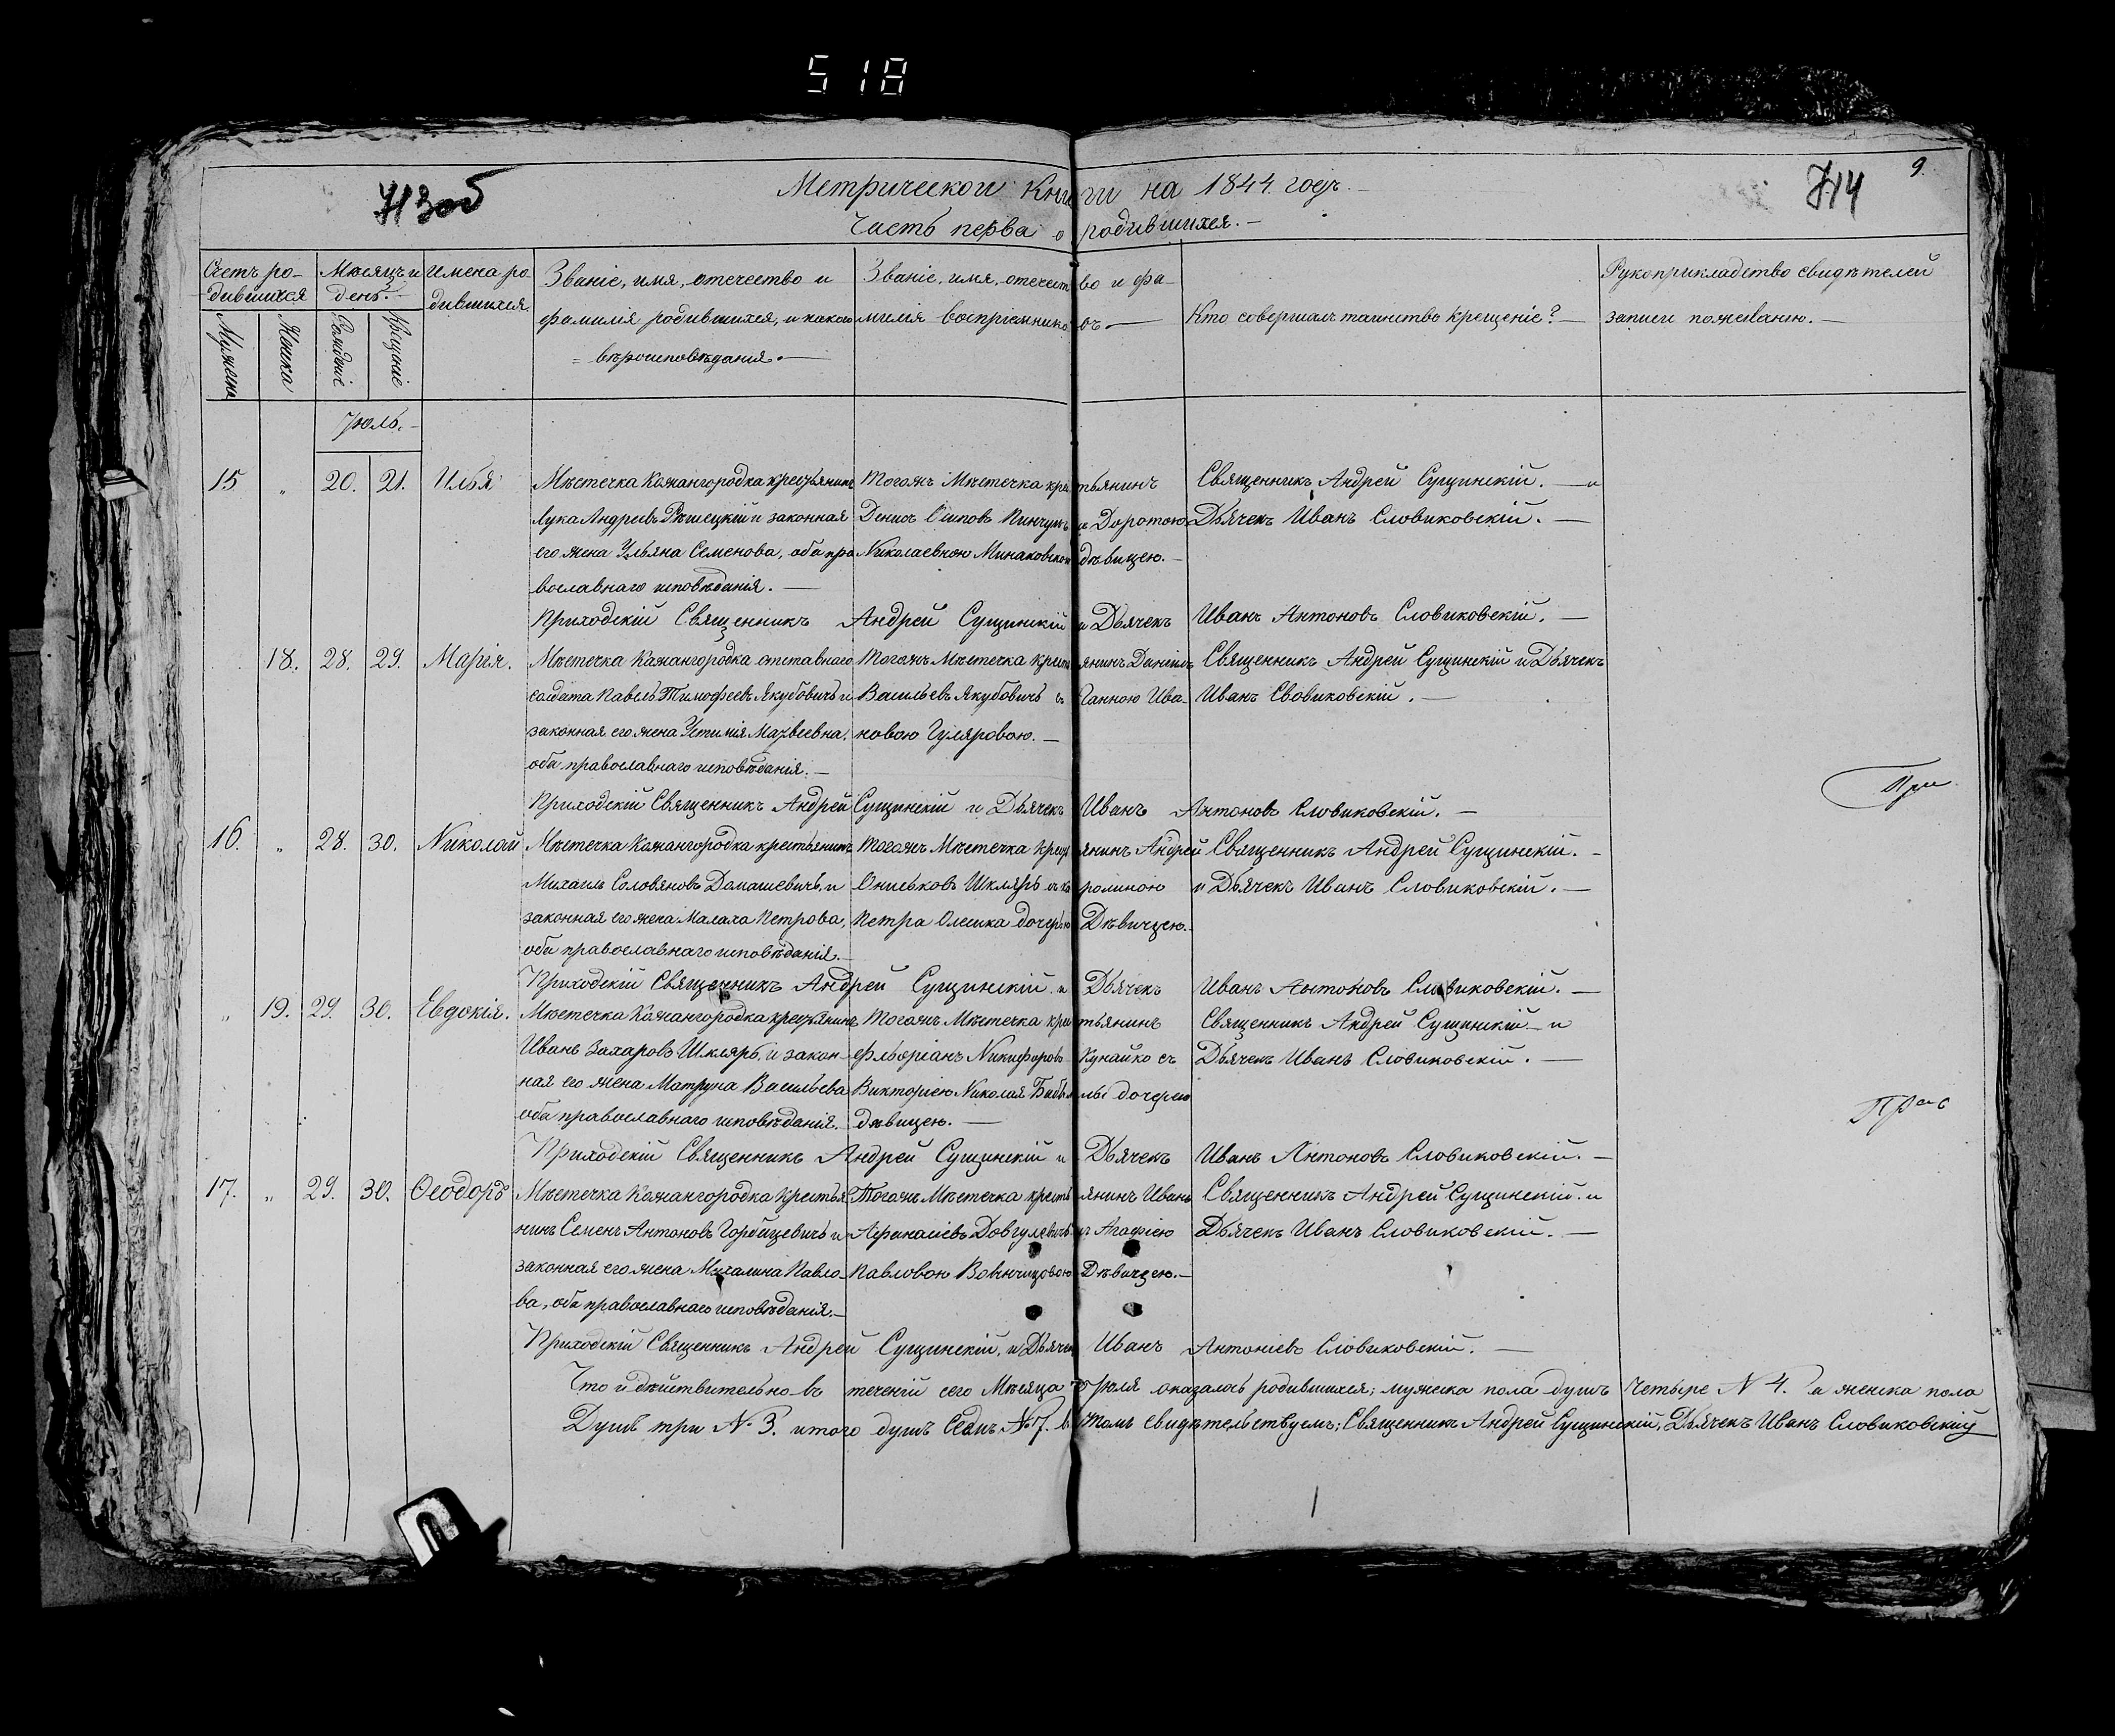 518
713об
714
9.
Метрической Книги на 1844. годъ.
Часть перва о родившихся.
Счетъ ро-
дившихся
Мужеска
Женска
Мѣсяцъ и
день.
Рожденіе
Крещеніе
Имена ро
дившихся.
Званіе, имя, отечество и
фамилія родившихся, и какого
вѣроисповѣданія.
Званіе, имя, отечество и фа-
милія воспріемниковъ.
Кто совершалъ таинство крещеніе?
Рукоприкладство свидѣтелей
записи пожеланію.
Іюль.
15 „ 20. 21. Илья
Мѣстечка Кожангородка крестьянинъ
Лука Андреевъ Рѣшецкій и законная
его жена Ульяна Семенова, оба пра
вославнаго исповѣданія.
Тогожъ Мѣстечка крестьянинъ
Денисъ Осиповъ Пинчукъ и Доротою
Николаевною Минаковскою дѣвицею.
Священникъ Андрей Сущинскій. и
Дьячекъ Иванъ Словиковскій.
Приходскій Священникъ Андрей Сущинскій и Дьячекъ Иванъ Антоновъ Словиковскій.
18. 28. 29. Марія.
Мѣстечка Кожангородка отставнаго
солдата Павелъ Тимофеевъ Якубовичъ и
законная его жена Устинія Матвеевна,
оба православнаго исповѣданія.
Тогожъ Мѣстечка крестьянинъ Даніилъ
Васильевъ Якубовичъ съ Ганною Ива-
новою Гуляровою.
Священникъ Андрей Сущинскій и Дьячекъ
Иванъ Словиковскій.
При
Приходскій Священникъ Андрей Сущинскій и Дьячекъ Иванъ Антоновъ Словиковскій.
16. „ 28. 30. Николай
Мѣстечка Кожангородка крестьянинъ
Михаилъ Соловяновъ Домашевичъ, и
законная его жена Малаха Петрова,
оба православнаго исповѣданія.
Тогожъ Мѣстечка крестьянинъ Андрей
Ониськовъ Шкляръ съ Каролиною
Петра Олешка дочерью Дѣвицею.
Священникъ Андрей Сущинскій.
и Дьячекъ Иванъ Словиковскій.
Приходскій Священникъ Андрей Сущинскій и Дьячекъ Иванъ Антоновъ Словиковскій.
„ 19. 29. 30. Евдокія.
Мѣстечка Кожангородка крестьянинъ
Иванъ Захаровъ Шкляръ, и закон-
ная его жена Матруна Васильева
оба православнаго исповѣданія.
Тогожъ Мѣстечка крестьянинъ
Фльоріанъ Никифоровъ Кунайко съ
Викторіею Николая дочерею
дѣвицею.
Священникъ Андрей Сущинскій и
Дьячекъ Иванъ Словиковскій.
Приходскій Священникъ Андрей Сущинскій и Дьячекъ Иванъ Антоновъ Словиковскій.
17. „ 29. 30. Ѳеодоръ
Мѣстечка Кожангородка крестья
нинъ Семенъ Антоновъ Горбацевичъ и
законная его жена Михалина Павло-
ва, оба православнаго исповѣданія.
Тогожъ Мѣстечка крестьянинъ Иванъ
Афанасіевъ Довгулевичъ съ Агафіею
Павловою Дѣвицею.
Священникъ Андрей Сущинскій. и
Дьячекъ Иванъ Словиковскій.
Приходскій Священникъ Андрей Сущинскій, и Дьячекъ Иванъ Антоніевъ Словиковскій.
Что и дѣйствительно въ теченіи сего Мѣсяца Іюля оказалось родившихся; мужеска пола душъ Четыре N 4. а женска пола
Душъ три N. 3. итого душъ Седмъ N 7. въ томъ свидѣтельствуемъ; Священникъ Андрей Сущинскій, Дьячекъ Иванъ Словиковскій